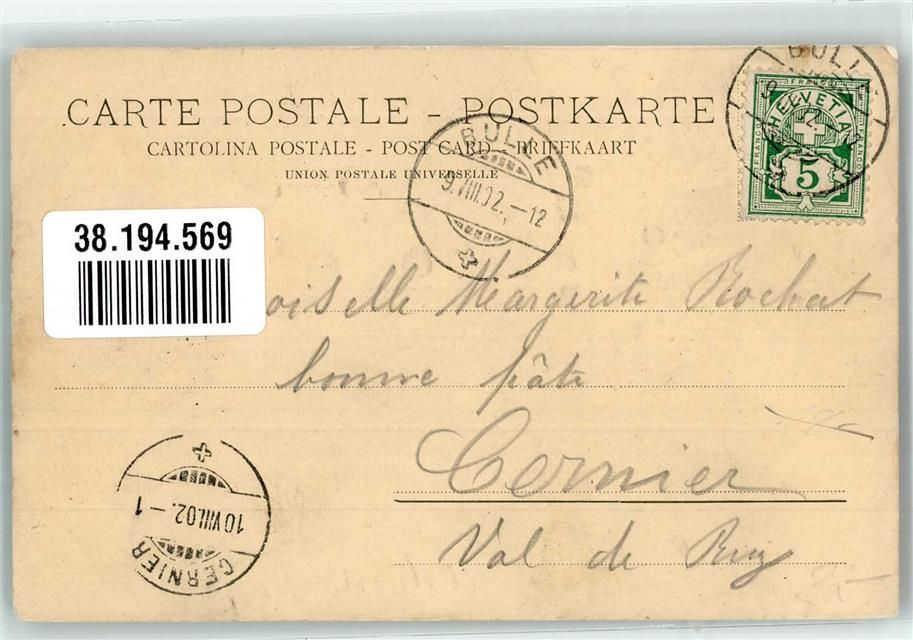 CARTE POSTALE - POSTKARTE
CARTOLINA POSTALE - POST CARD - BRIEFKAART
UNION POSTALE UNIVERSELLE
BULLE
FRANCO
HELVETIA
5
BULLE
9.VIII.02.-12
38.194.569
oiselle Margerite Rochat
bonne pâte
Cernier
Val de Ruz
10 VIII.02.-1
CERNIER